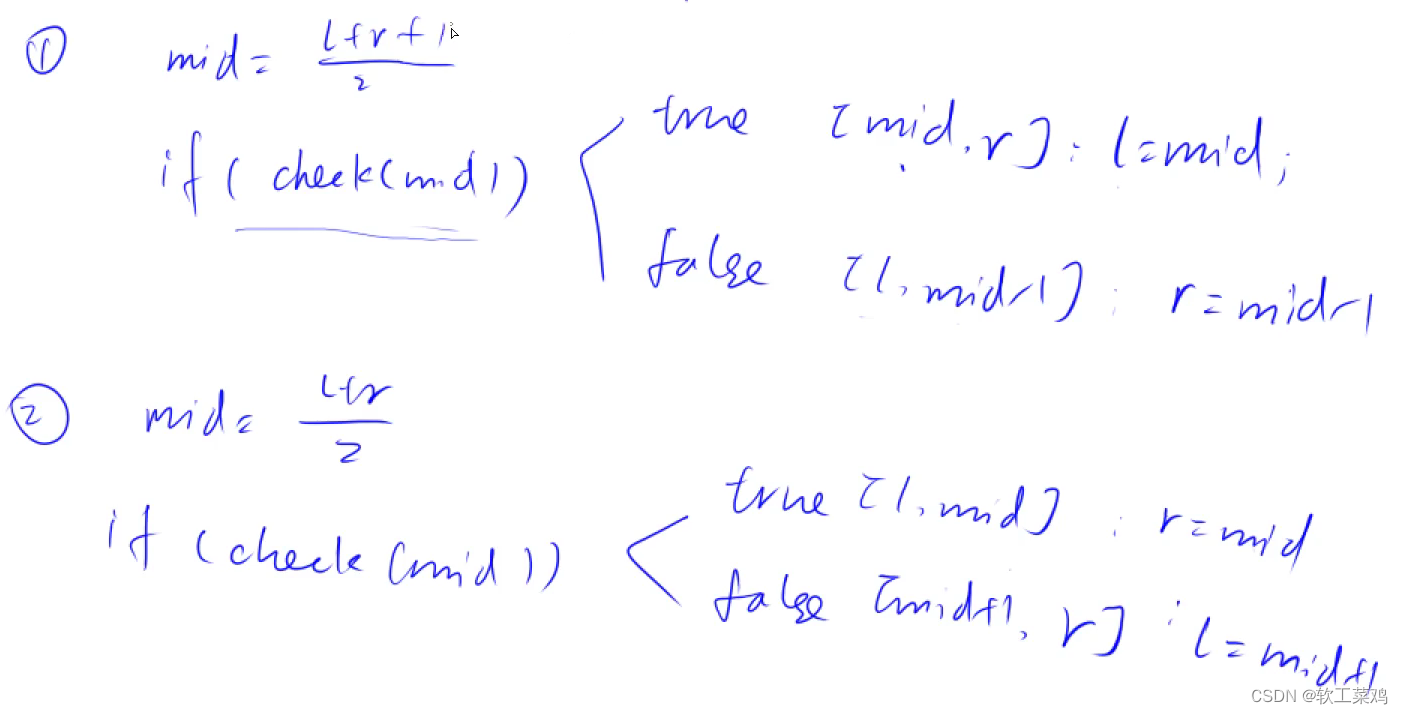 ① mid = (l+r+1)/2
if ( check(mid) )
true [mid, r] : l=mid;
false [l, mid-1] : r=mid-1
② mid = (l+r)/2
if (check (mid))
true [l, mid] : r=mid
false [mid+1, r] : l=mid+1
CSDN @软工菜鸡